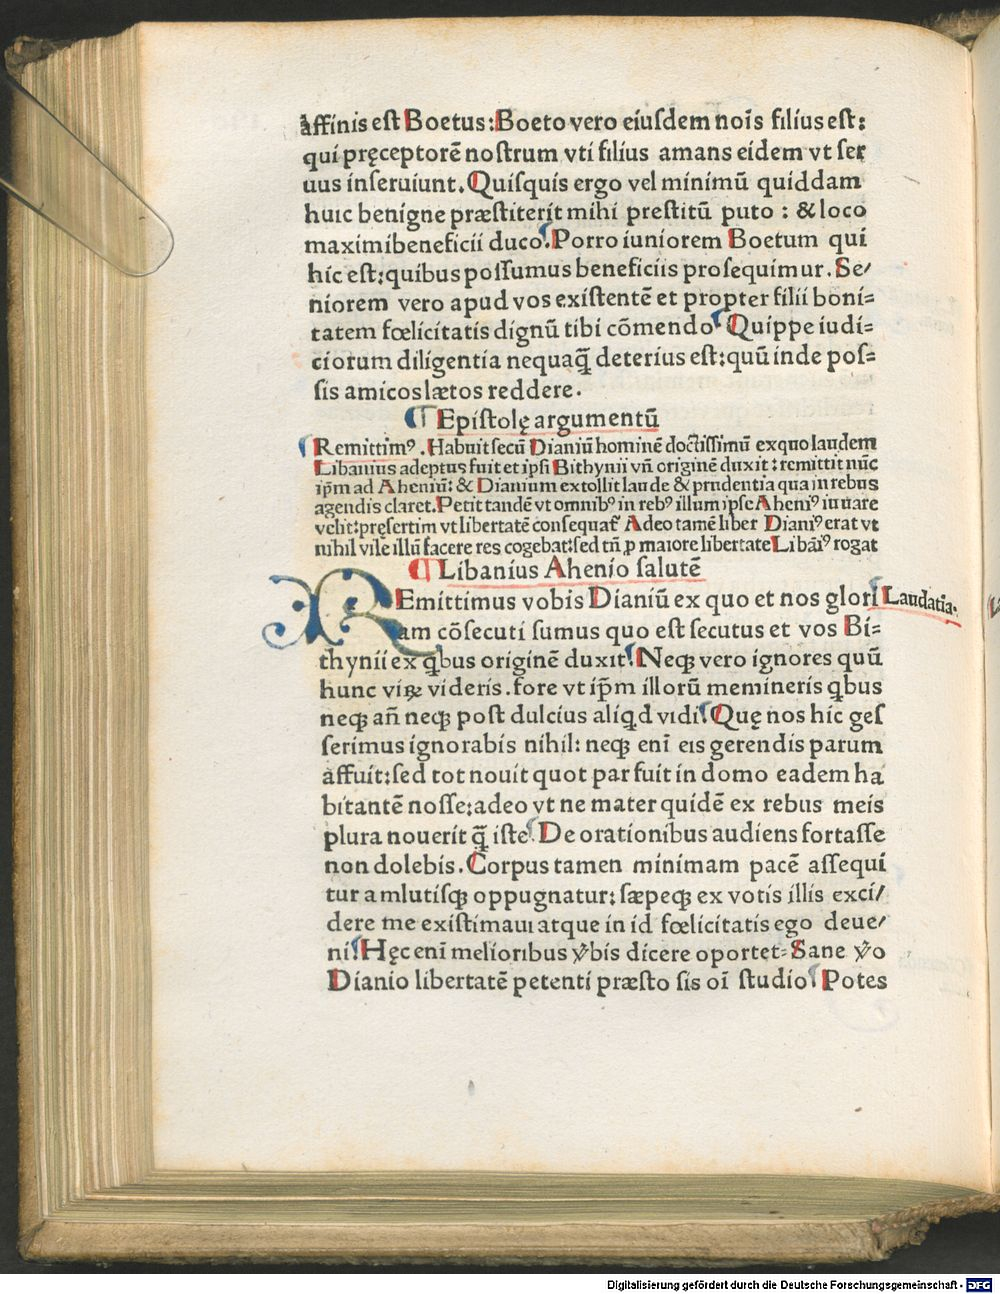 affinis est Boetus: Boeto vero eiusdem noīs filius est:
qui pręceptorē nostrum vti filius amans eidem vt ser
uus inseruiunt. Quisquis ergo vel minimū quiddam
huic benigne præstiterit mihi prestitū puto : & loco
maximi beneficii duco. Porro iuniorem Boetum qui
hic est: quibus possumus beneficiis prosequimur. Se/
niorem vero apud vos existentē et propter filii boni=
tatem fœlicitatis dignū tibi cōmendo Quippe iudi=
ciorum diligentia nequaq̄ deterius est: quū inde pos=
sis amicos lætos reddere.
¶ Epistolę argumentū
Remittimꝰ. Habuit secū Dianiū hominē doctissimū ex quo laudem
Libanius adeptus fuit et ipsi Bithynii vñ originē duxit: remittit nūc
ip̄m ad Aheniū: & Dianium extollit laude & prudentia qua in rebus
agendis claret. Petit tandē vt omnibꝰ in rebꝰ illum ipse Aheniꝰ iuuare
velit: pręsertim vt libertatē consequat᷒ Adeo tamē liber Dianiꝰ erat vt
nihil vile illū facere res cogebat: sed tn̄ ꝓ maiore libertate Libāiꝰ rogat
¶ Libanius Ahenio salutē
REmittimus vobis Dianiū ex quo et nos glori Laudatīa.
am cōsecuti sumus quo est secutus et vos Bi=
thynii ex q̇bus originē duxit. Neqꝫ vero ignores quū
hunc viꝝ videris. fore vt ip̄m illorū memineris q̇bus
neqꝫ añ neqꝫ post dulcius aliq̇d vidi. Quę nos hic ges
serimus ignorabis nihil: neqꝫ eni eis gerendis parum
affuit: sed tot nouit quot par fuit in domo eadem ha
bitantē nosse: adeo vt ne mater quidē ex rebus meis
plura nouerit q̄ iste. De orationibus audiens fortasse
non dolebis. Corpus tamen minimam pacē assequi
tur a mlutisqꝫ oppugnatur: sæpeqꝫ ex votis illis exci/
dere me existimaui atque in id fœlicitatis ego deue/
ni. Hęc eni melioribus v̊bis dicere oportet= Sane v̊o
Dianio libertatē petenti præsto sis oī studio Potes
Digitalisierung gefördert durch die Deutsche Forschungsgemeinschaft - DFG